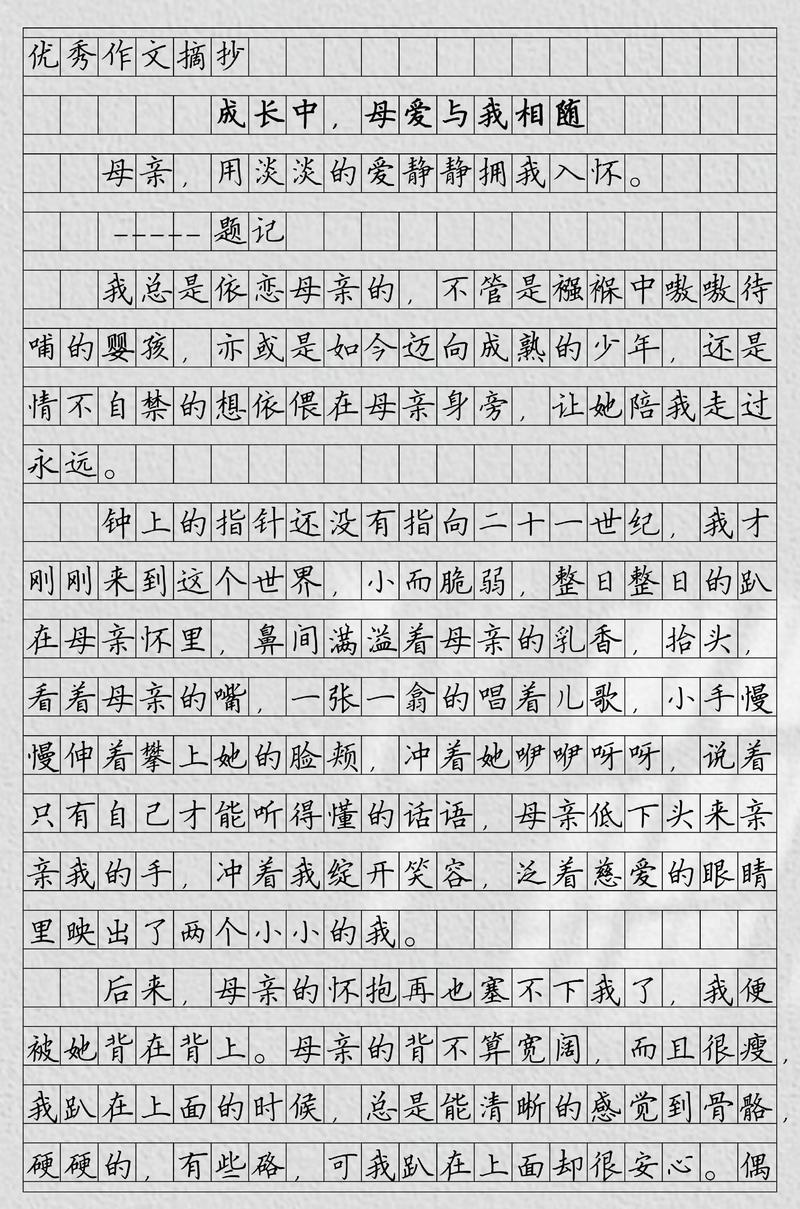 优秀作文摘抄
成长中，母爱与我相随
母亲，用淡淡的爱静静拥我入怀。
-----题记
我总是依恋母亲的，不管是襁褓中嗷嗷待
哺的婴孩，亦或是如今迈向成熟的少年，还是
情不自禁的想依偎在母亲身旁，让她陪我走过
永远。
钟上的指针还没有指向二十一世纪，我才
刚刚来到这个世界，小而脆弱，整日整日的趴
在母亲怀里，鼻间满溢着母亲的乳香，抬头，
看着母亲的嘴，一张一翕的唱着儿歌，小手慢
慢伸着攀上她的脸颊，冲着她咿咿呀呀，说着
只有自己才能听得懂的话语，母亲低下头来亲
亲我的手，冲着我绽开笑容，泛着慈爱的眼睛
里映出了两个小小的我。
后来，母亲的怀抱再也塞不下我了，我便
被她背在背上。母亲的背不算宽阔，而且很瘦，
我趴在上面的时候，总是能清晰的感觉到骨骼，
硬硬的，有些硌，可我趴在上面却很安心。偶